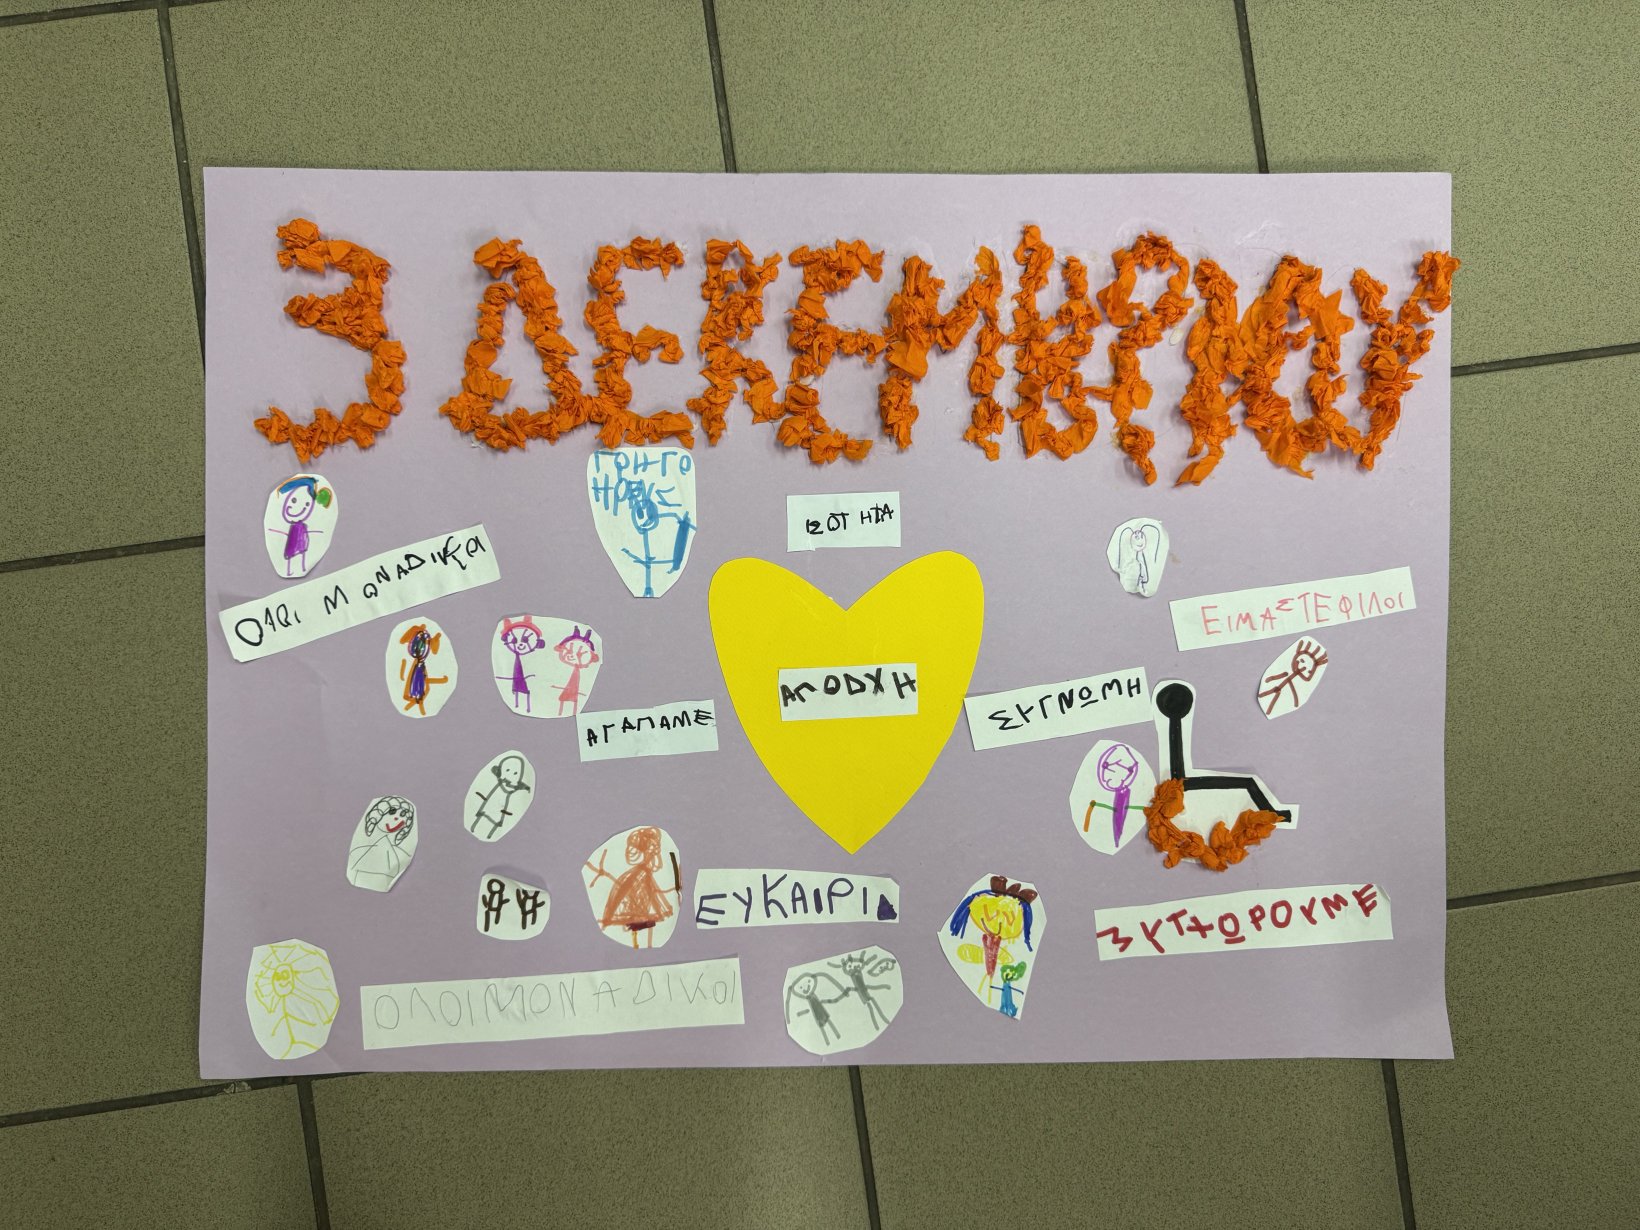 3 ΔΕΚΕΜΒΡΙΟΥ
ΓΡΗΓΟ
ΙΣΟΤΗΤΑ
ΟΛΟΙ ΜΟΝΑΔΙΚΟΙ
ΕΙΜΑΣΤΕ ΦΙΛΟΙ
ΑΠΟΔΧΗ
ΣΥΓΝΩΜΗ
ΑΓΑΠΑΜΕ
ΕΥΚΑΙΡΙΑ
ΣΥΓΧΩΡΟΥΜΕ
ΟΛΟΙ ΜΟΝΑΔΙΚΟΙ